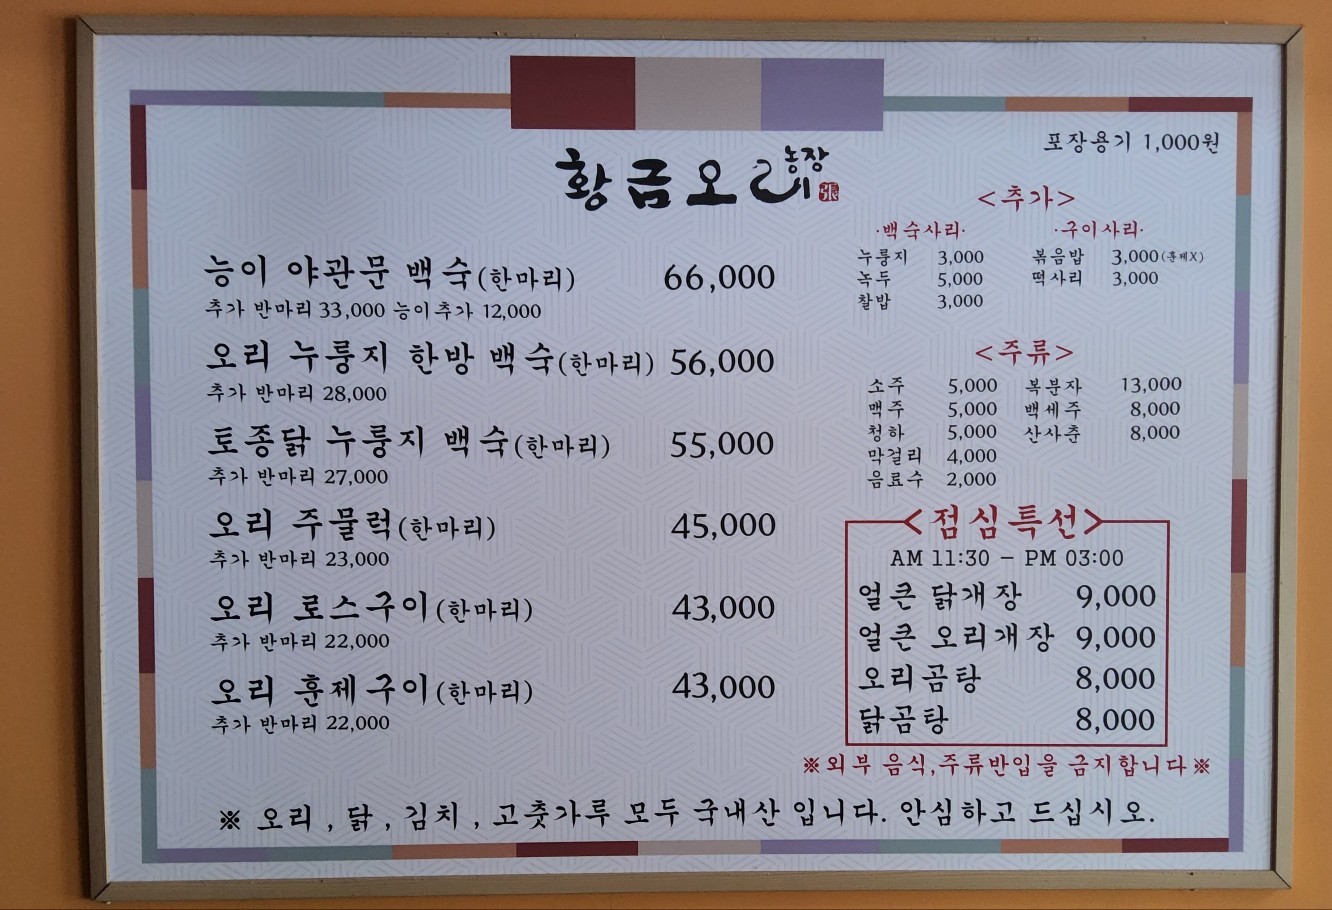 황금오리 농장
포장용기 1,000원
능이 야관문 백숙(한마리) 66,000
추가 반마리 33,000 능이추가 12,000
오리 누룽지 한방 백숙(한마리) 56,000
추가 반마리 28,000
토종닭 누룽지 백숙(한마리) 55,000
추가 반마리 27,000
오리 주물럭(한마리) 45,000
추가 반마리 23,000
오리 로스구이(한마리) 43,000
추가 반마리 22,000
오리 훈제구이(한마리) 43,000
추가 반마리 22,000
<추가>
·백숙사리· ·구이사리·
누룽지 3,000 볶음밥 3,000(훈제X)
녹두 5,000 떡사리 3,000
찰밥 3,000
<주류>
소주 5,000 복분자 13,000
맥주 5,000 백세주 8,000
청하 5,000 산사춘 8,000
막걸리 4,000
음료수 2,000
<점심특선>
AM 11:30 - PM 03:00
얼큰 닭개장 9,000
얼큰 오리개장 9,000
오리곰탕 8,000
닭곰탕 8,000
※외부 음식,주류반입을 금지합니다※
※ 오리, 닭, 김치, 고춧가루 모두 국내산 입니다. 안심하고 드십시오.